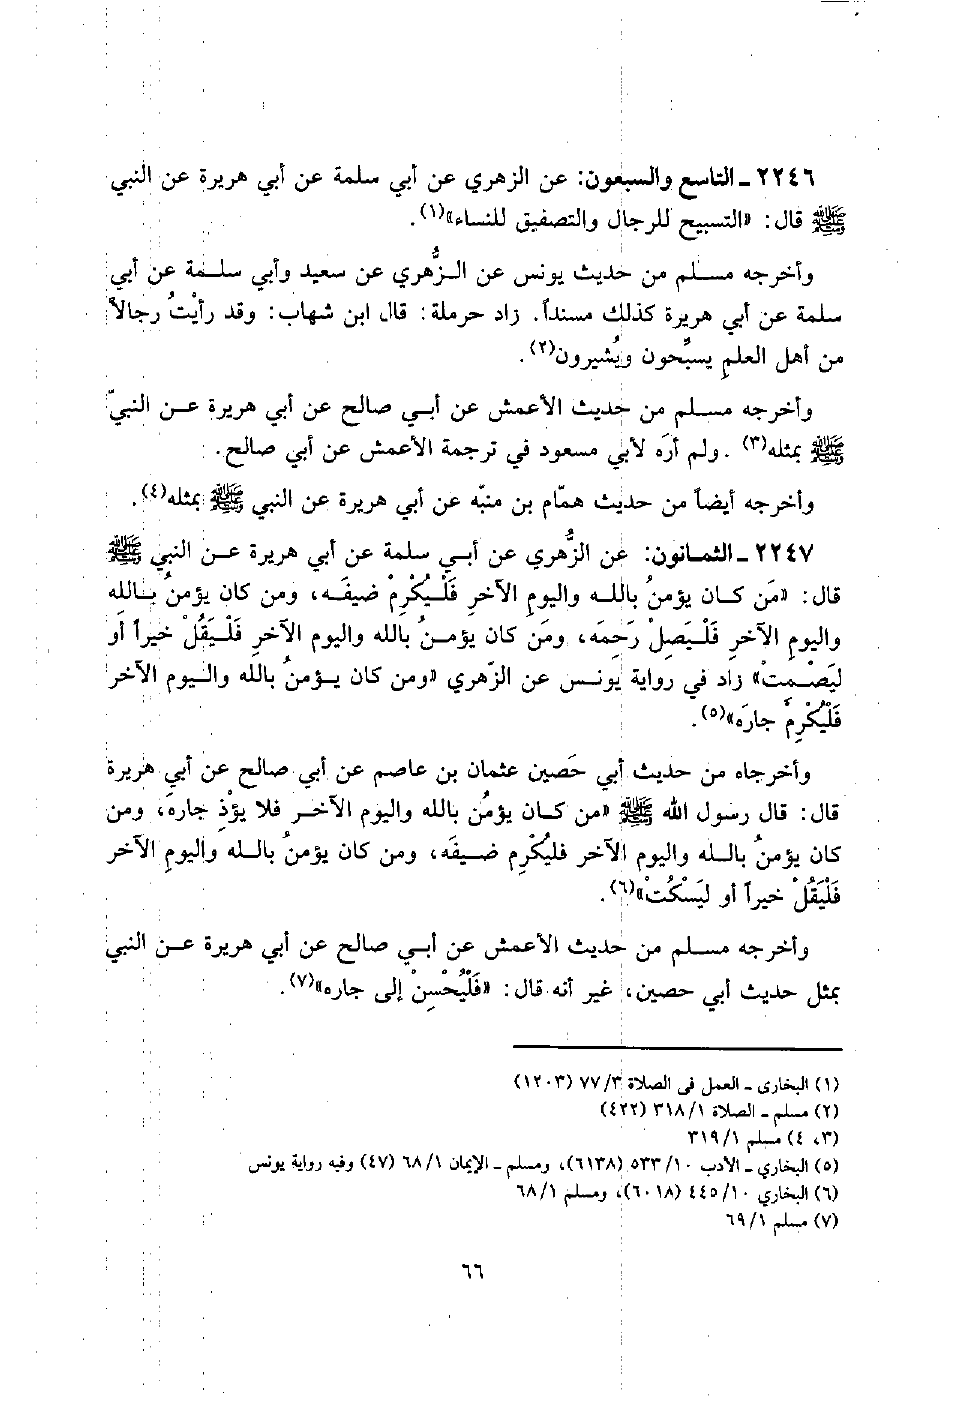 ٢٢٤٦ ـ التاسع والسبعون: عن الزهري عن أبي سلمة عن أبي هريرة عن النبي
ﷺ قال: «التسبيح للرجال والتصفيق للنساء»(١).
وأخرجه مسلم من حديث يونس عن الزُّهري عن سعيد وأبي سلمة عن أبي
سلمة عن أبي هريرة كذلك مسنداً. زاد حرملة: قال ابن شهاب: وقد رأيْتُ رجالاً
من أهل العلمِ يسبِّحون ويُشيرون(٢).
وأخرجه مسلم من حديث الأعمش عن أبي صالح عن أبي هريرة عن النبيّ
ﷺ بمثله(٣) .ولم أرَه لأبي مسعود في ترجمة الأعمش عن أبي صالح.
وأخرجه أيضاً من حديث همّام بن منبّه عن أبي هريرة عن النبي ﷺ بمثله(٤).
٢٢٤٧ ـ الثمانون: عن الزُّهري عن أبي سلمة عن أبي هريرة عن النبي ﷺ
قال: «مَن كان يؤمنُ بالله واليوم الآخرِ فَلْيُكْرِمْ ضيفَه، ومن كان يؤمنُ بالله
واليومِ الآخرِ فَلْيَصِلْ رَحِمَه، ومَن كان يؤمنُ بالله واليومِ الآخرِ فَلْيَقُلْ خيراً أو
ليَصْمتْ» زاد في رواية يونس عن الزّهري «ومن كان يؤمنُ بالله واليوم الآخر
فَلْيُكْرِمْ جارَه»(٥).
وأخرجاه من حديث أبي حَصين عثمان بن عاصم عن أبي صالح عن أبي هريرة
قال: قال رسول الله ﷺ «من كان يؤمُن بالله واليوم الآخر فلا يؤْذِ جارهَ، ومن
كان يؤمنُ بالله واليوم الآخر فليُكْرِم ضيفَه، ومن كان يؤمنُ بالله واليومِ الآخر
فَلْيَقُلْ خيراً أو ليَسْكُتْ»(٦).
وأخرجه مسلم من حديث الأعمش عن أبي صالح عن أبي هريرة عن النبي
بمثل حديث أبي حصين، غير أنه قال: «فَلْيُحْسِنْ إلى جاره»(٧).
(١) البخارى ـ العمل فى الصلاة ٣/ ٧٧ (١٢٠٣)
(٢) مسلم ـ الصلاة ١/ ٣١٨ (٤٢٢)
(٣، ٤) مسلم ١/ ٣١٩
(٥) البخاري ـ الأدب ١٠/ ٥٣٣ (٦١٣٨)، ومسلم ـ الإيمان ١/ ٦٨ (٤٧) وفيه رواية يونس
(٦) البخاري ١٠/ ٤٤٥ (٦٠١٨)، ومسلم ١/ ٦٨
(٧) مسلم ١/ ٦٩
٦٦